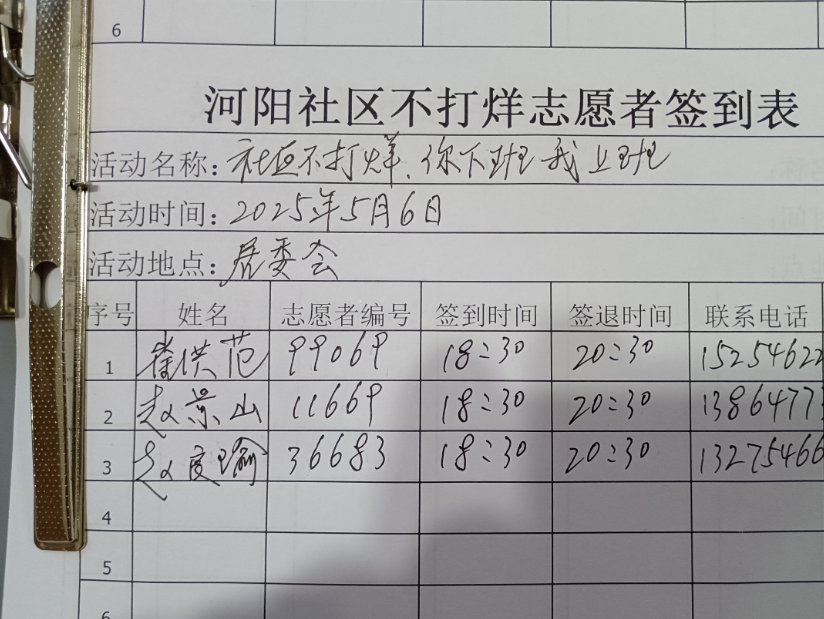 6
河阳社区不打烊志愿者签到表
活动名称：社区不打烊、你下班我上班
活动时间：2025年5月6日
活动地点：居委会
序号 姓名 志愿者编号 签到时间 签退时间 联系电话
1 崔洪范 99069 18:30 20:30 15254622
2 赵景山 11669 18:30 20:30 1386477
3 赵度瑜 36683 18:30 20:30 13275466
4
5
6